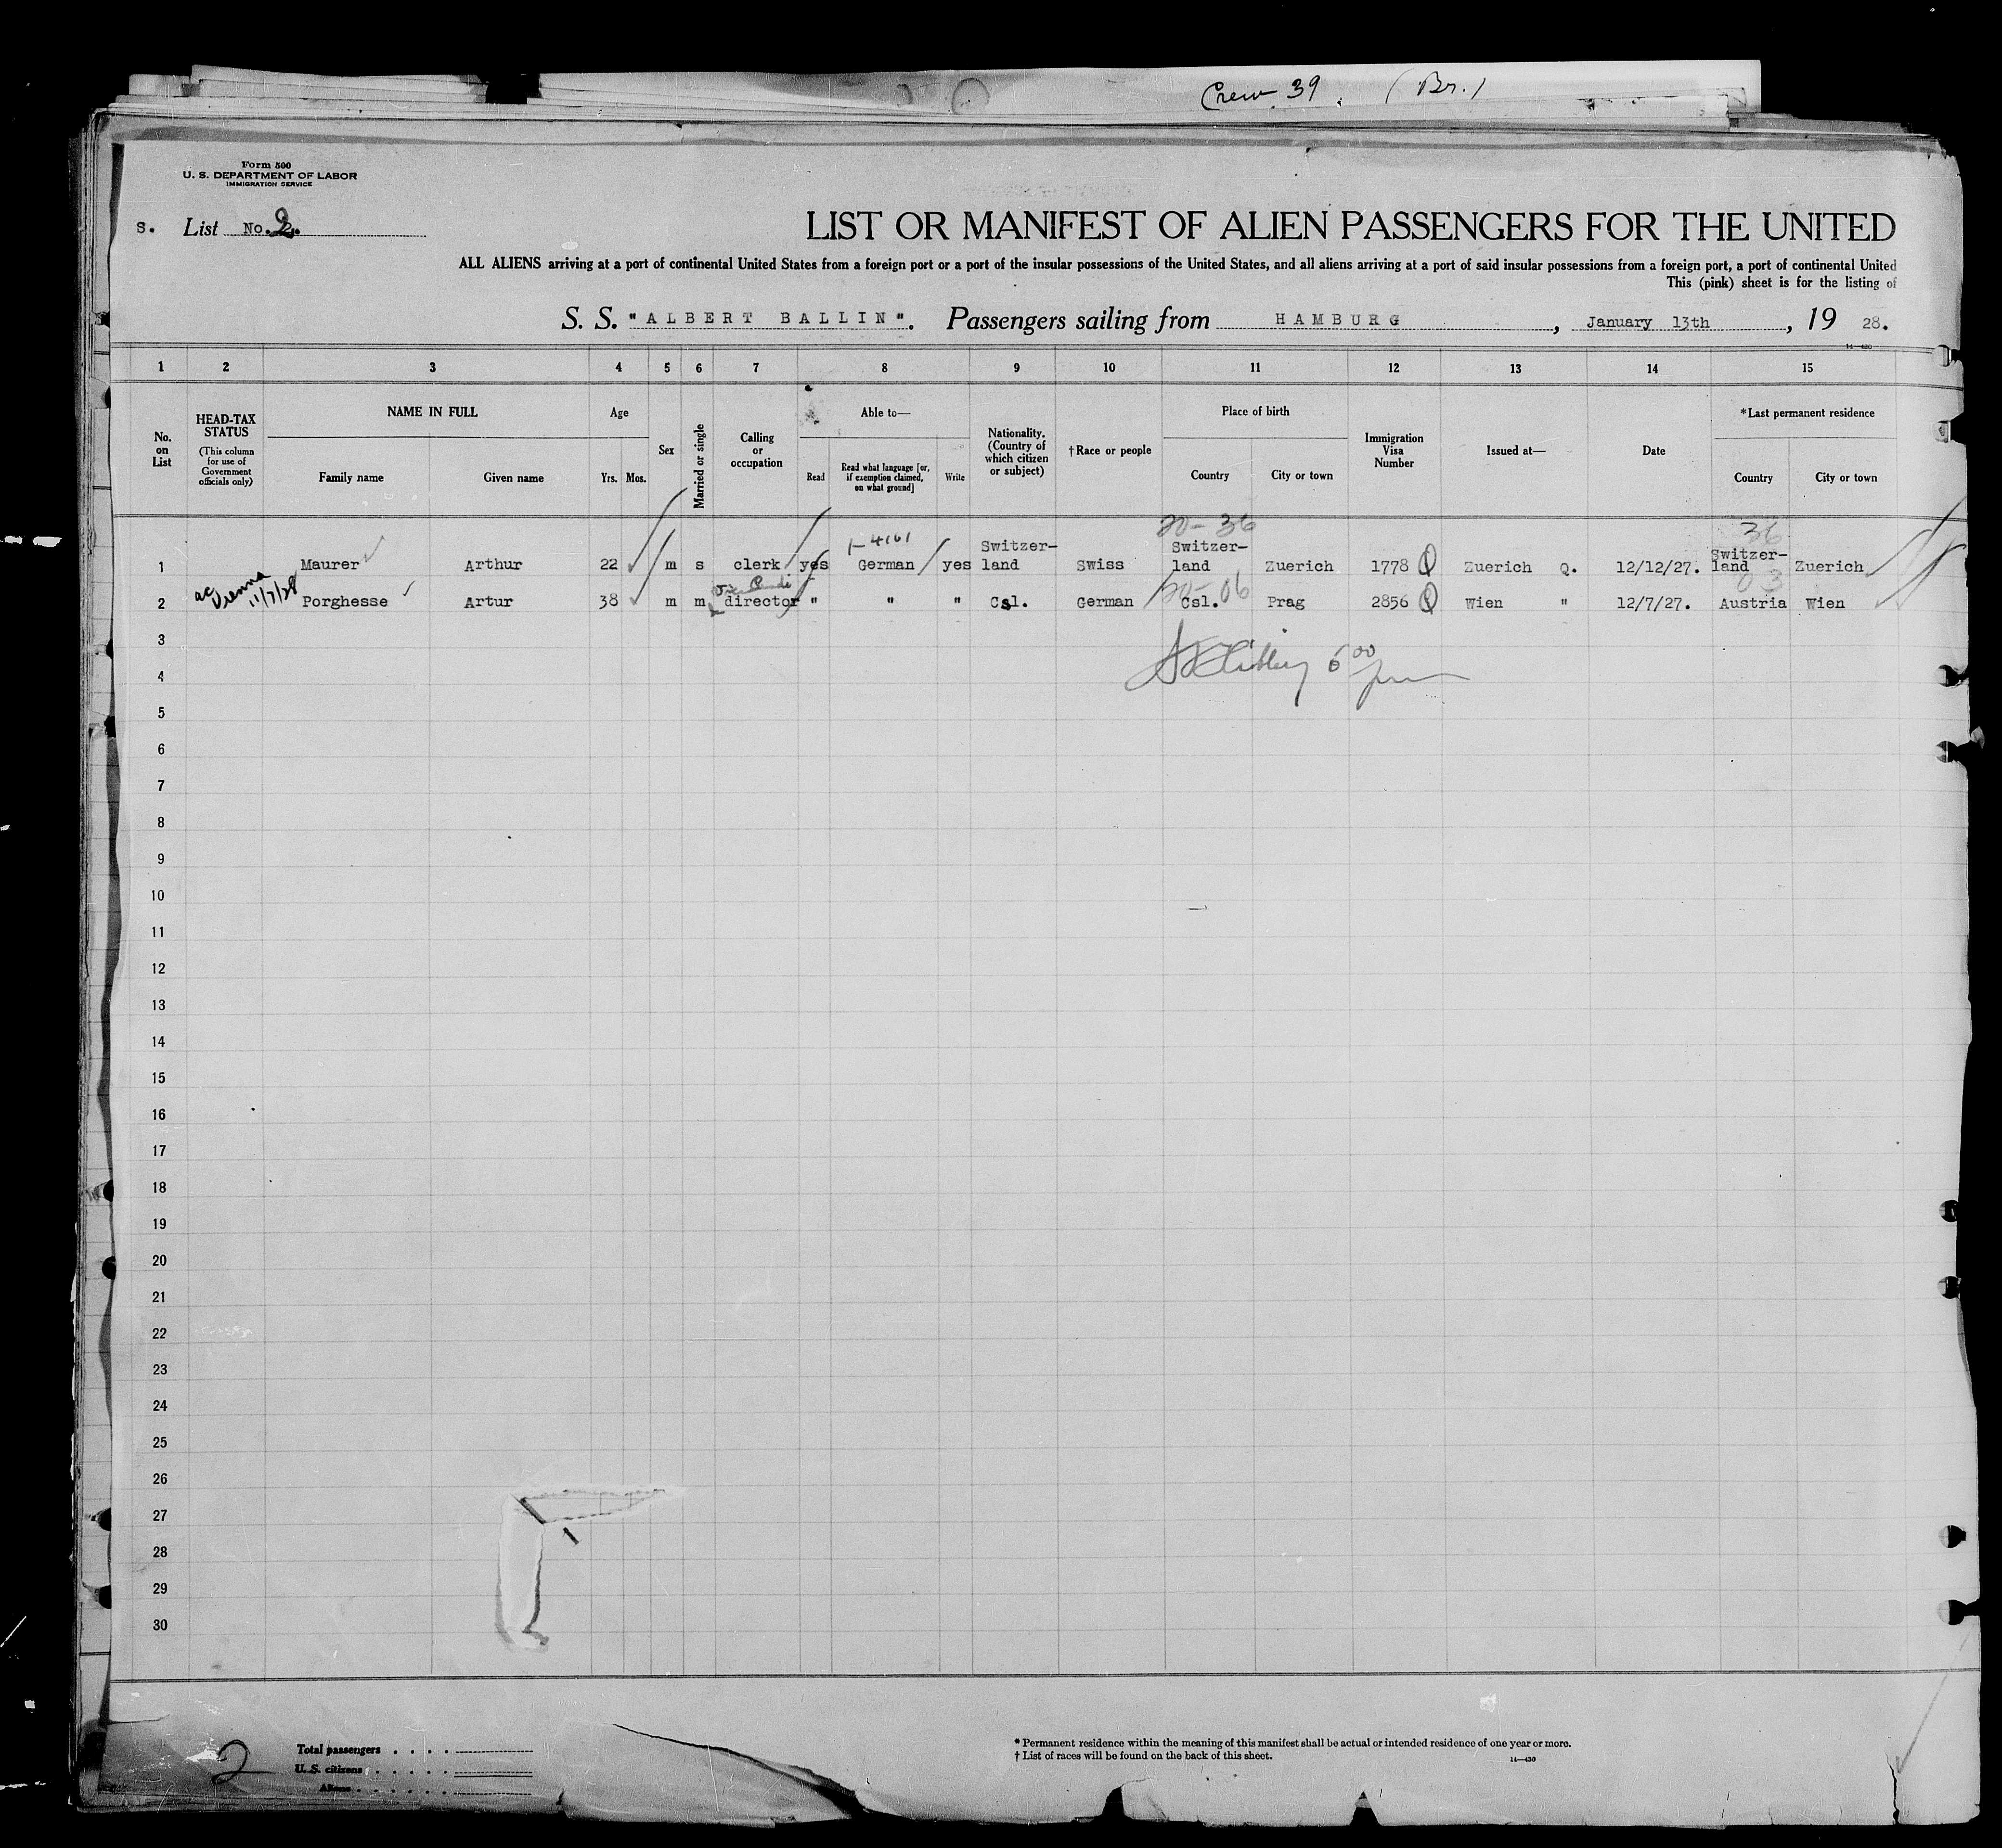 Crew. 39 (Br.)
Form 500
U. S. DEPARTMENT OF LABOR
IMMIGRATION SERVICE
S. List No. 2.
LIST OR MANIFEST OF ALIEN PASSENGERS FOR THE UNITED
ALL ALIENS arriving at a port of continental United States from a foreign port or a port of the insular possessions of the United States, and all aliens arriving at a port of said insular possessions from a foreign port, a port of continental United
This (pink) sheet is for the listing of
S. S. "ALBERT BALLIN". Passengers sailing from HAMBURG, January 13th, 19 28.
14—430
1 2 3 4 5 6 7 8 9 10 11 12 13 14 15
No. on List
HEAD-TAX STATUS
(This column for use of Government officials only)
NAME IN FULL
Family name Given name
Age
Yrs. Mos.
Sex
Married or single
Calling or occupation
Able to—
Read
Read what language [or, if exemption claimed, on what ground]
Write
Nationality. (Country of which citizen or subject)
†Race or people
Place of birth
Country City or town
Immigration Visa Number
Issued at—
Date
*Last permanent residence
Country City or town
20-36 36
1-4161
1 Maurer Arthur 22 m s clerk yes German yes Switzer-land Swiss Switzer-land Zuerich 1778 Q Zuerich Q. 12/12/27. Switzer-land Zuerich
ac Vienna 11/7/38
20-06 03
2 Porghesse Artur 38 m m director " " " Csl. German Csl. Prag 2856 Q Wien " 12/7/27. Austria Wien
3
6 00 pm
4
5
6
7
8
9
10
11
12
13
14
15
16
17
18
19
20
21
22
23
24
25
26
27
28
29
30
2
Total passengers . . . .
U. S. citizens . . . . .
Aliens . . . . . .
* Permanent residence within the meaning of this manifest shall be actual or intended residence of one year or more.
† List of races will be found on the back of this sheet.
14—430